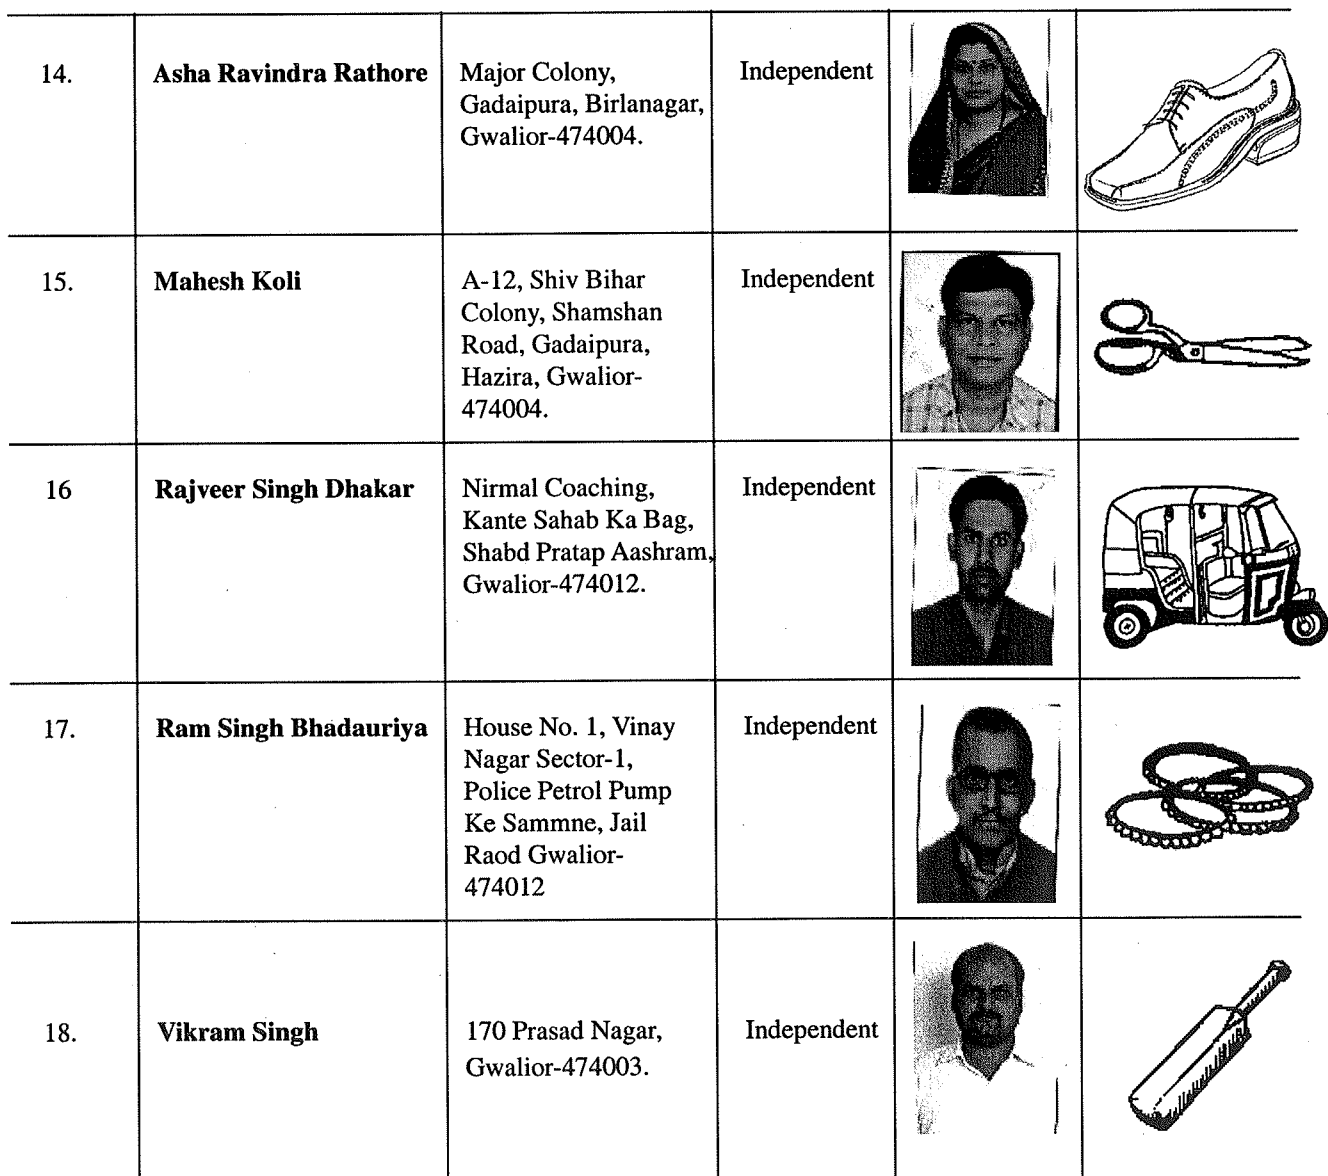 14.
Asha Ravindra Rathore
Major Colony,
Gadaipura, Birlanagar,
Gwalior-474004.
Independent
15.
Mahesh Koli
A-12, Shiv Bihar
Colony, Shamshan
Road, Gadaipura,
Hazira, Gwalior-
474004.
Independent
16
Rajveer Singh Dhakar
Nirmal Coaching,
Kante Sahab Ka Bag,
Shabd Pratap Aashram,
Gwalior-474012.
Independent
17.
Ram Singh Bhadauriya
House No. 1, Vinay
Nagar Sector-1,
Police Petrol Pump
Ke Sammne, Jail
Raod Gwalior-
474012
Independent
18.
Vikram Singh
170 Prasad Nagar,
Gwalior-474003.
Independent